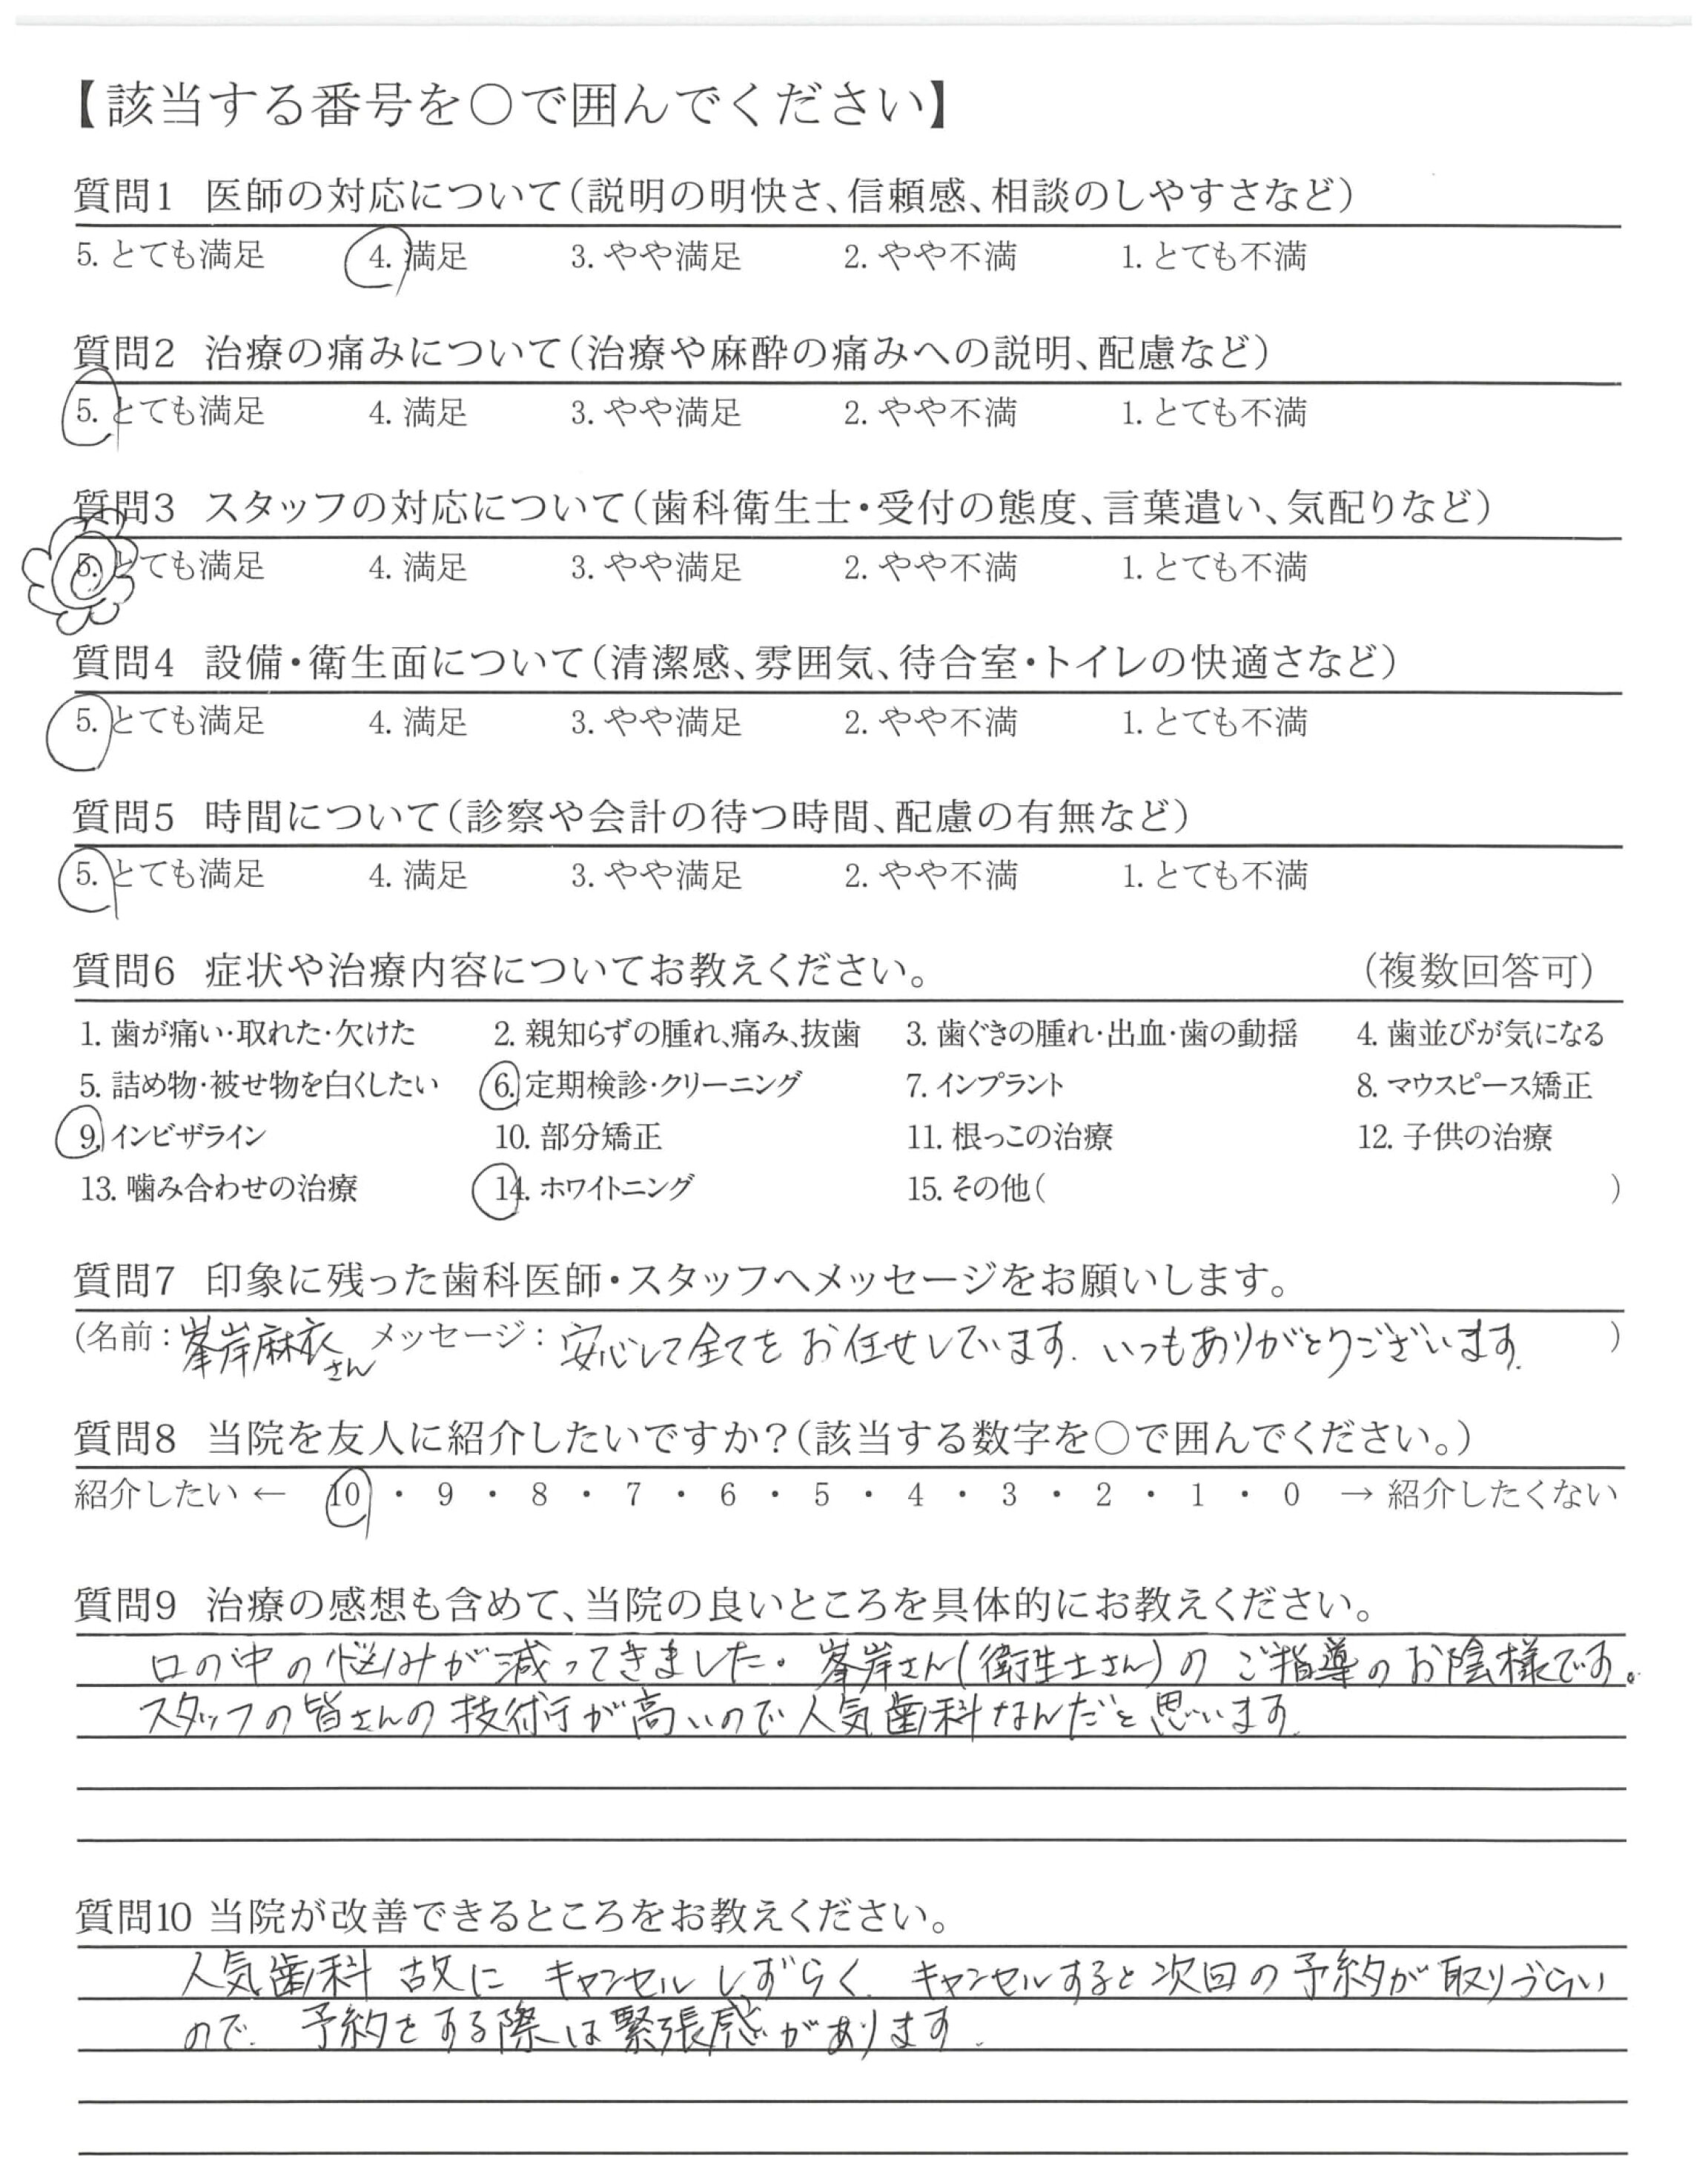 【該当する番号を〇で囲んでください】
質問1 医師の対応について(説明の明快さ、信頼感、相談のしやすさなど)
5. とても満足 4. 満足 3. やや満足 2. やや不満 1. とても不満
質問2 治療の痛みについて(治療や麻酔の痛みへの説明、配慮など)
5. とても満足 4. 満足 3. やや満足 2. やや不満 1. とても不満
質問3 スタッフの対応について(歯科衛生士・受付の態度、言葉遣い、気配りなど)
5. とても満足 4. 満足 3. やや満足 2. やや不満 1. とても不満
質問4 設備・衛生面について(清潔感、雰囲気、待合室・トイレの快適さなど)
5. とても満足 4. 満足 3. やや満足 2. やや不満 1. とても不満
質問5 時間について(診察や会計の待つ時間、配慮の有無など)
5. とても満足 4. 満足 3. やや満足 2. やや不満 1. とても不満
質問6 症状や治療内容についてお教えください。 (複数回答可)
1. 歯が痛い・取れた・欠けた 2. 親知らずの腫れ、痛み、抜歯 3. 歯ぐきの腫れ・出血・歯の動揺 4. 歯並びが気になる
5. 詰め物・被せ物を白くしたい 6. 定期検診・クリーニング 7. インプラント 8. マウスピース矯正
9. インビザライン 10. 部分矯正 11. 根っこの治療 12. 子供の治療
13. 噛み合わせの治療 14. ホワイトニング 15. その他( )
質問7 印象に残った歯科医師・スタッフへメッセージをお願いします。
(名前:峯岸麻衣さん メッセージ:安心して全てをお任せしています. いつもありがとうございます. )
質問8 当院を友人に紹介したいですか?(該当する数字を〇で囲んでください。)
紹介したい ← 10 ・ 9 ・ 8 ・ 7 ・ 6 ・ 5 ・ 4 ・ 3 ・ 2 ・ 1 ・ 0 → 紹介したくない
質問9 治療の感想も含めて、当院の良いところを具体的にお教えください。
口の中の悩みが減ってきました。峯岸さん(衛生士さん)のご指導のお陰様です。
スタッフの皆さんの技術が高いので人気歯科なんだと思います.
質問10 当院が改善できるところをお教えください。
人気歯科故に キャンセルしずらく. キャンセルすると次回の予約が取りづらい
ので. 予約をする際は緊張感があります.